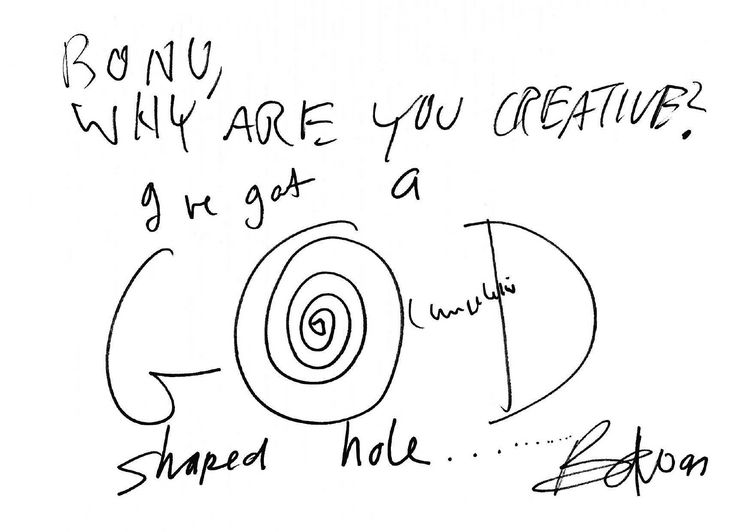 BONO,
WHY ARE YOU CREATIVE?
I've got a
GOD
shaped hole..........